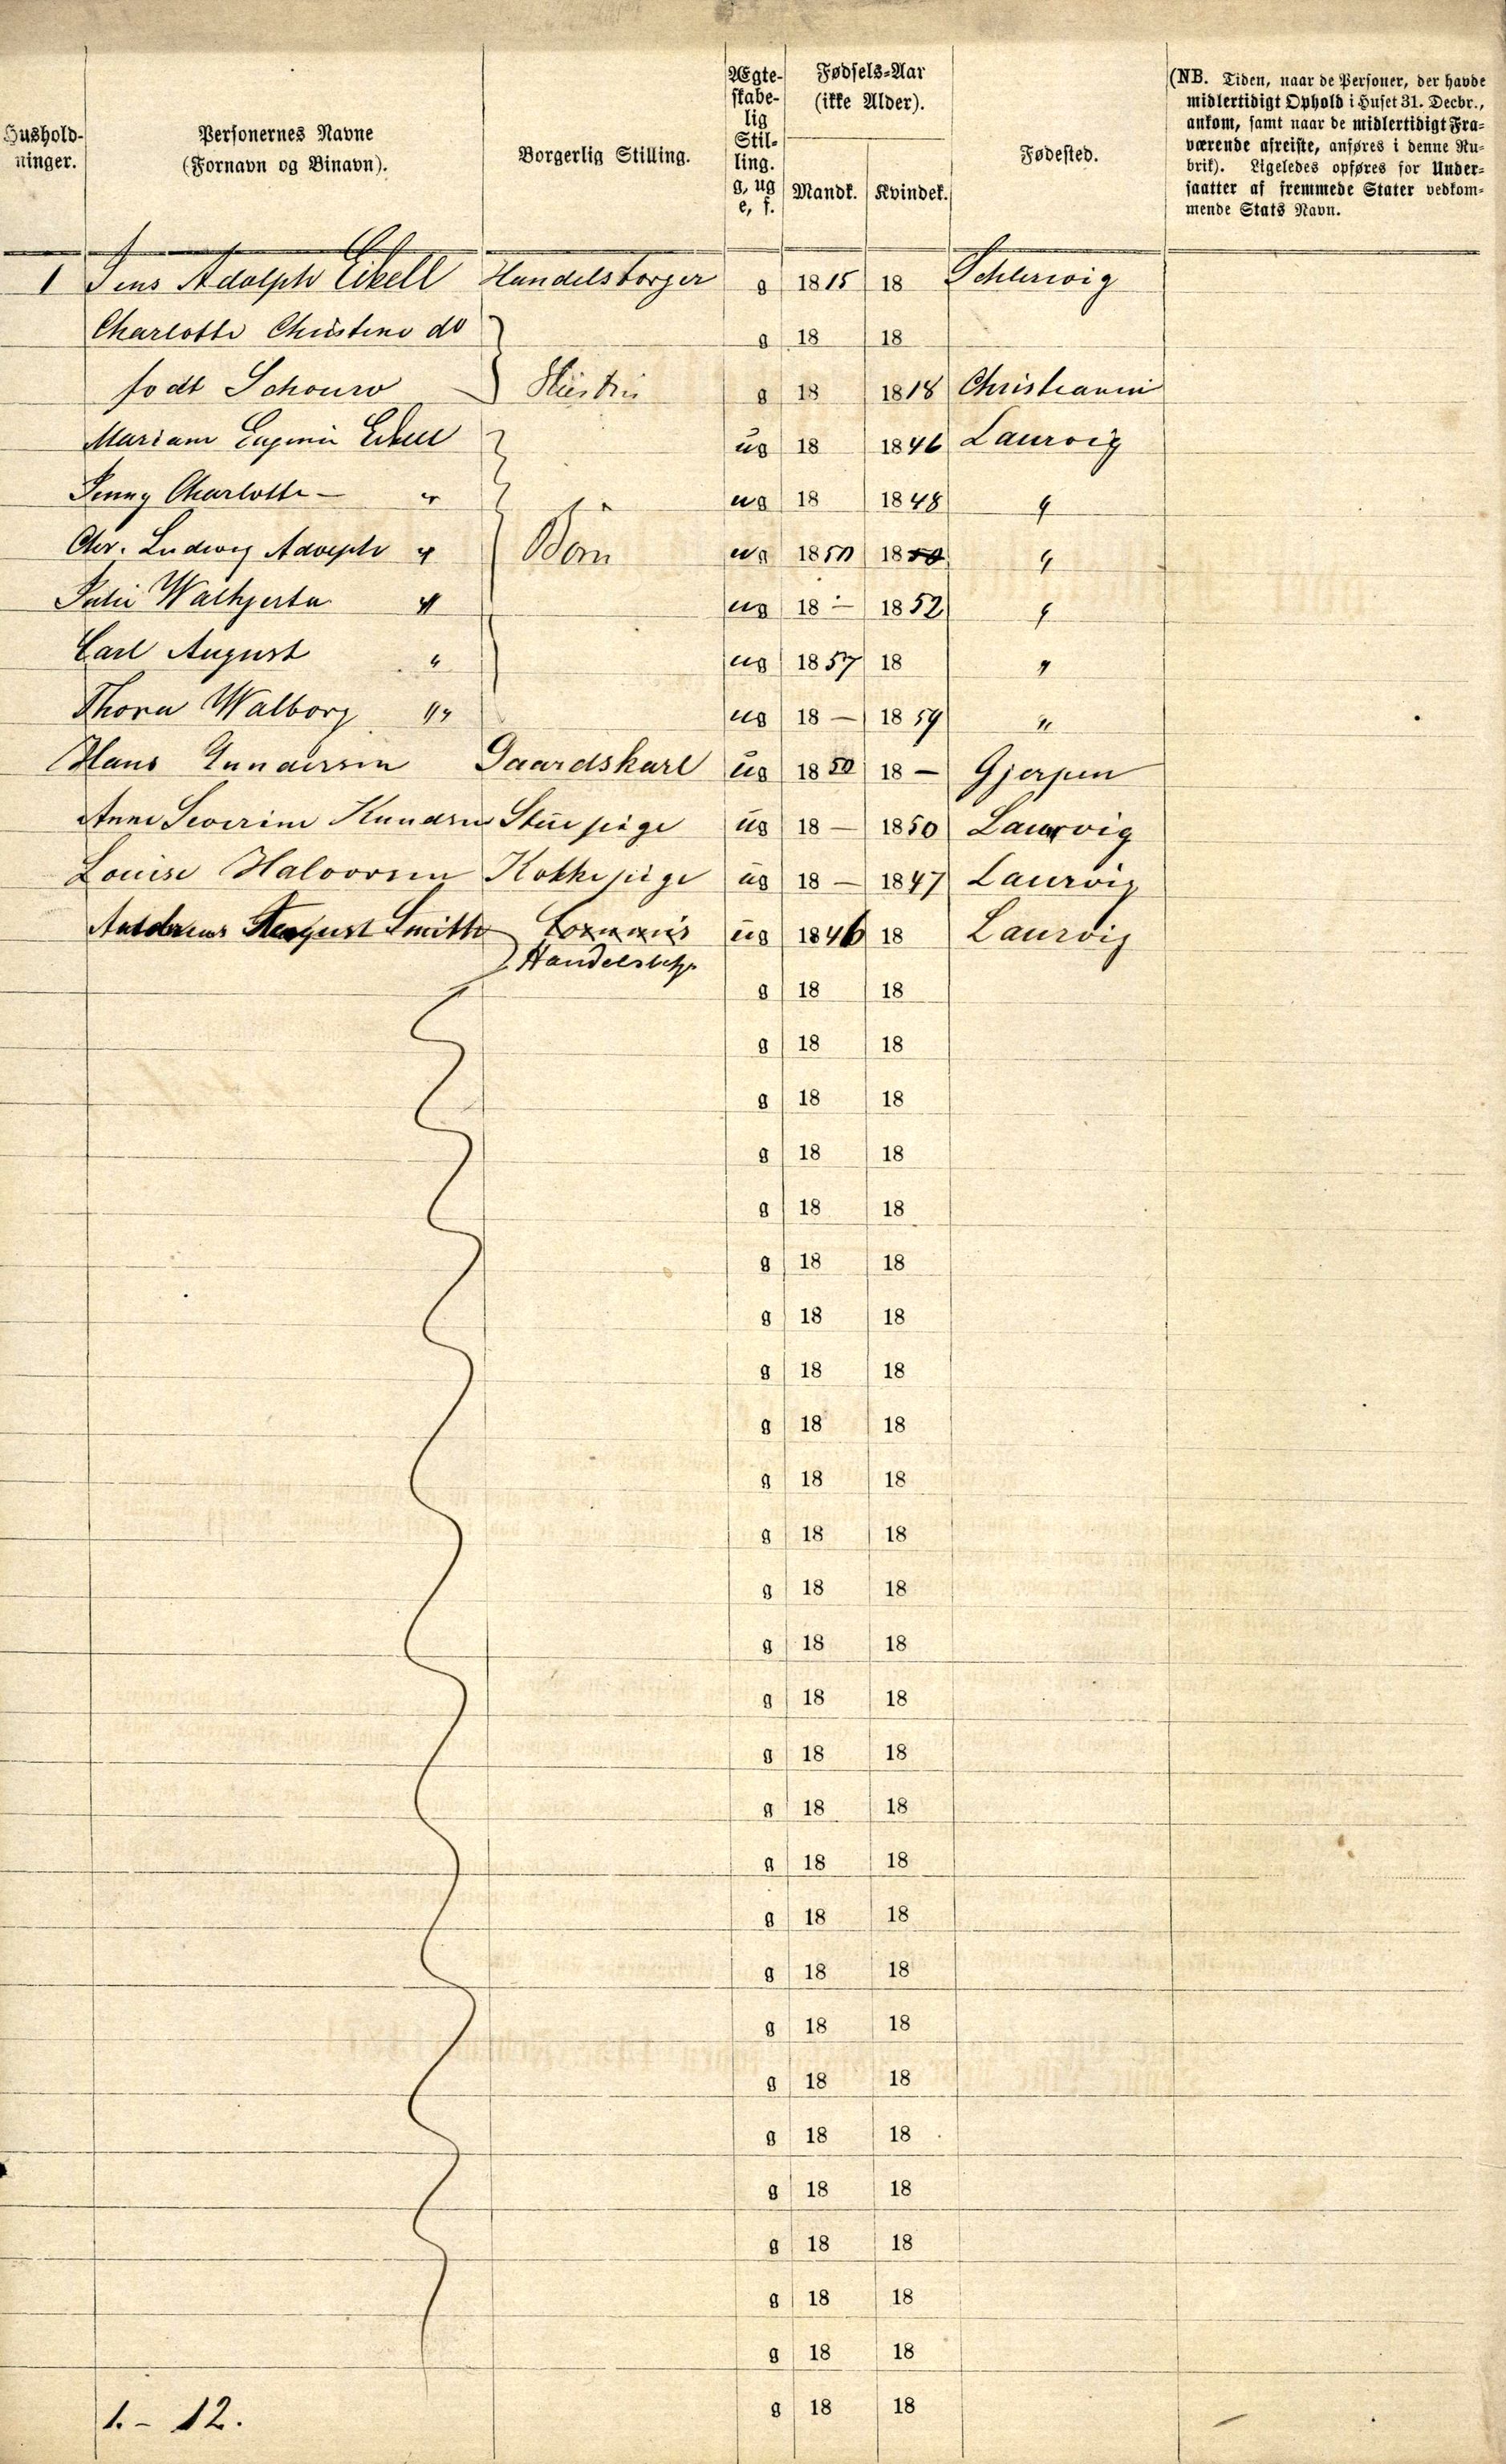 Hushold-
ninger.
Personernes Navne
(Fornavn og Binavn).
Borgerlig Stilling.
Ægte-
skabe-
lig
Stil-
ling.
g, ug
e, f.
Fødsels-Aar
(ikke Alder).
Mandk. Kvindek.
Fødested.
(NB. Tiden, naar de Personer, der havde
midlertidigt Ophold i Huset 31. Decbr.,
ankom, samt naar de midlertidigt Fra-
værende afreiste, anføres i denne Ru-
brik). Ligeledes opføres for Under-
saatter af fremmede Stater vedkom-
mende Stats Navn.
1 Jens Adolph Eikell Handelsborger g 1815 18 Schleswig
Charlotte Christine do g 18 18
født Schouw Hustru g 18 1818 Christiania
Mariane Eugenie Eikell ug 18 1846 Laurvig
Jenny Charlotte — " ug 18 1848 "
Chr. Ludwig Adolph " Børn ug 1850 1850 "
Julie Walkjerta " ug 18 — 1852 "
Carl August " ug 1857 18 "
Thora Walborg " ug 18 — 1859 "
Hans Gundersen Gaardskarl ug 1850 18 — Gjerpen
Anne Severine Knudsen Stuepige ug 18 — 1850 Laurvig
Louise Halvorsen Kokkepige ug 18 — 1847 Laurvig
Andreas August Smith Commis ug 1846 18 Laurvig
Handelsbtj.
g 18 18
g 18 18
g 18 18
g 18 18
g 18 18
g 18 18
g 18 18
g 18 18
g 18 18
g 18 18
g 18 18
g 18 18
g 18 18
g 18 18
g 18 18
g 18 18
g 18 18
g 18 18
g 18 18
g 18 18
g 18 18
g 18 18
g 18 18
g 18 18
g 18 18
g 18 18
g 18 18
1. – 12.